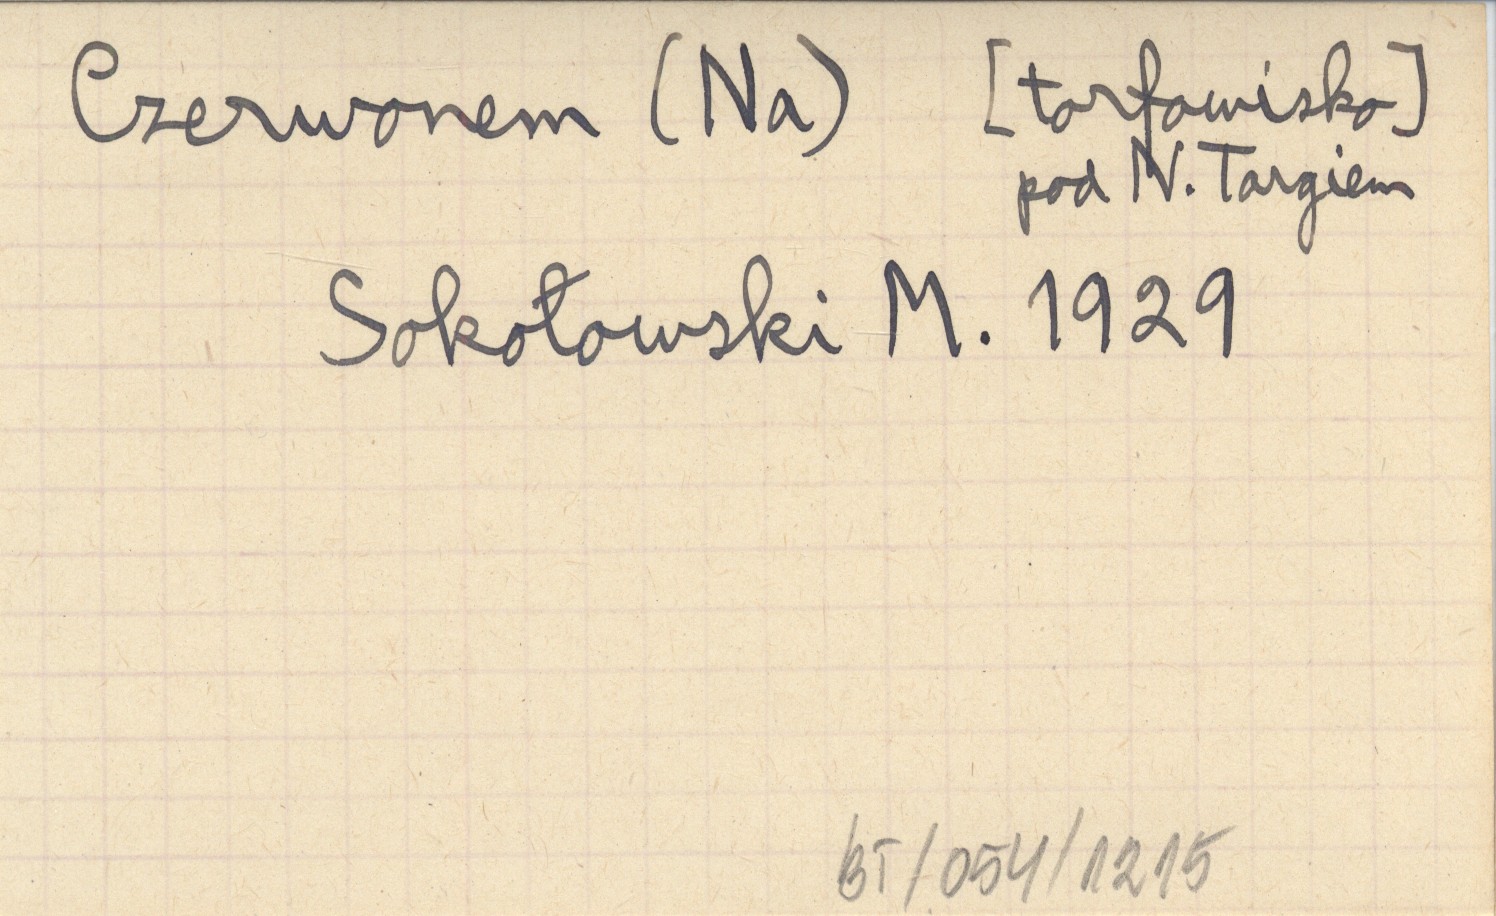 Czerwonem (Na) [torfowisko]
pod N. Targiem
Sokołowski M. 1929
BT/054/1215